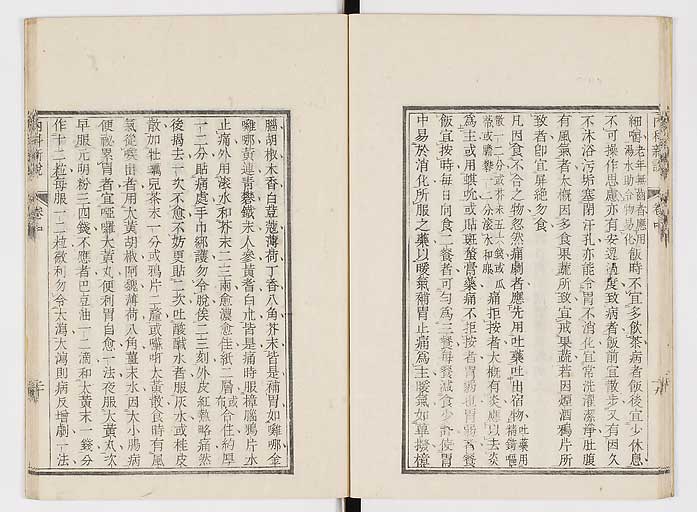 細嚼老年無齒者應用湯水助合物易化飯時不宜多飲茶病者飯後宜少休息
不可操作思慮亦有安逸過度致病者飯前宜散步又有因久
不沐浴污垢塞閉汗孔亦能令胃不消化宜常洗濯潔淨肚腹
有風氣者大概因多食果蔬所致宜戒果蔬若因煙酒鴉片所
致者卽宜屏絶勿食
凡因食不合之物忽然痛劇者應先用吐藥吐出宿物吐藥用
痛拒按者大概有炎應以去炎
爲主或用蜞吮或貼斑蝥膏藥痛不拒按者胃弱也胃弱者餐
飯宜按時每日向食二餐者可勻爲三餐每餐減食少許使胃
中易於消化所服之藥以暖氣補胃止痛爲主暖氣如草撥樟
腦胡椒木香白荳蔻薄荷丁香八角芥末皆是補胃如雞哪金
雞哪黃連靑礬鐵末人參黃耆白朮皆是痛時服樟腦鴉片水
止痛外用滾水和芥末二三兩愈濃愈佳紙二層或布合住約厚
一二分貼痛處手巾綁護勿令脫俟二三刻外皮紅熱略痛然
後揭去一次不愈不妨更貼二次吐酸鹹水者服灰水或桂皮
散加牡蠣兒茶末一分或鴉片二釐或囉唎大黃散食時有風
氣從喉出者用大黃胡椒阿魏薄荷八角薑末水因大小腸病
便祕累胃者宜啞囉大黃丸便利胃自愈一法夜服大黃丸次
早服元明粉三四錢不應者巴豆油一二滴和大黃末一錢分
作十二粒每服一二粒微利勿令大瀉大瀉則病反增劇一法
內科新說
卷中